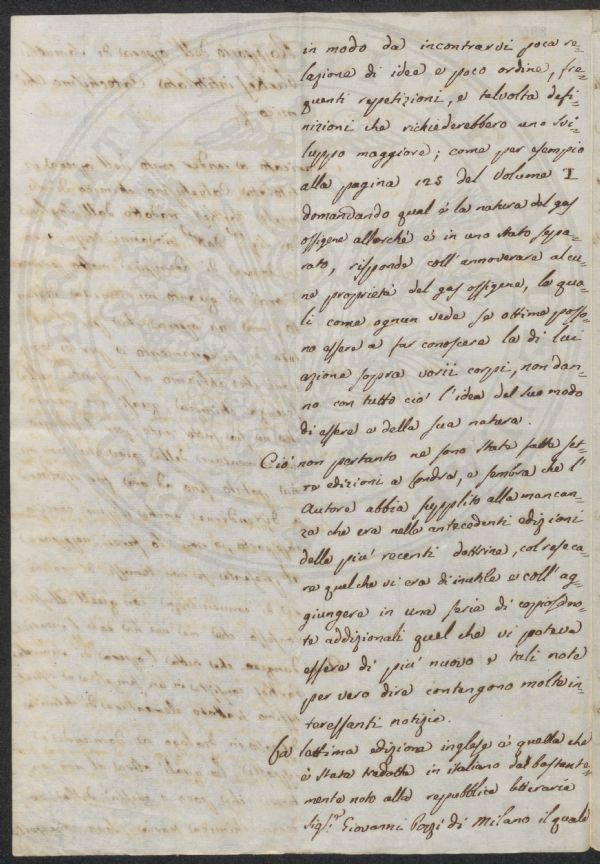 in modo da incontrarvi poca re-
lazione di idee e poco ordine, fre-
quenti repetizioni, e talvolta defi-
nizioni che richiederebbero uno svi-
luppo maggiore; come per esempio
alla pagina 125 del Volume I
domandando qual è la natura del gas
ossigene allorché è in uno stato sepa-
rato, risponde coll'annoverare alcu-
ne proprietà del gas ossigene, le qua-
li come ognun vede se ottime posso-
no essere a far conoscere la di lui
azione sopra varii corpi, non dan-
no con tutto ciò l'idea del suo modo
di essere e della sua natura.
Ciò non pertanto ne sono state fatte set-
te edizioni a Londra, e sembra che l'
Autore abbia supplito alla mancan-
za che era nelle antecedenti edizioni
delle più recenti dottrine, col reseca-
re quel che vi era di inutile e coll'ag-
giungere in una serie di copiose no-
te addizionali quel che vi poteva
essere di più nuovo e tali note
per vero dire contengono molte in-
teressanti notizie.
La settima edizione inglese è quella che
è stata tradotta in italiano dal bastante-
mente noto alla repubblica letteraria
Sig.r Giovanni Pozzi di Milano il quale